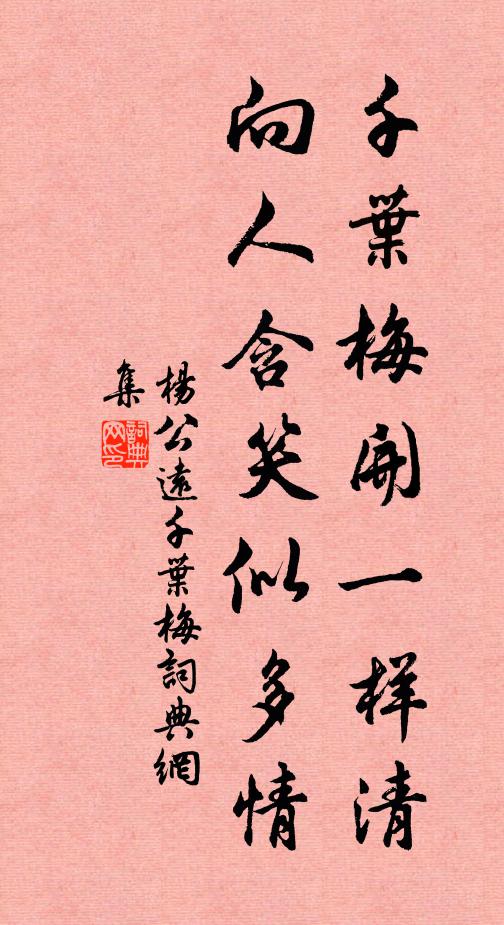 千葉梅開一样清
向人含笑似多情
楊公遠千葉梅詞典網
集
詞典
网印